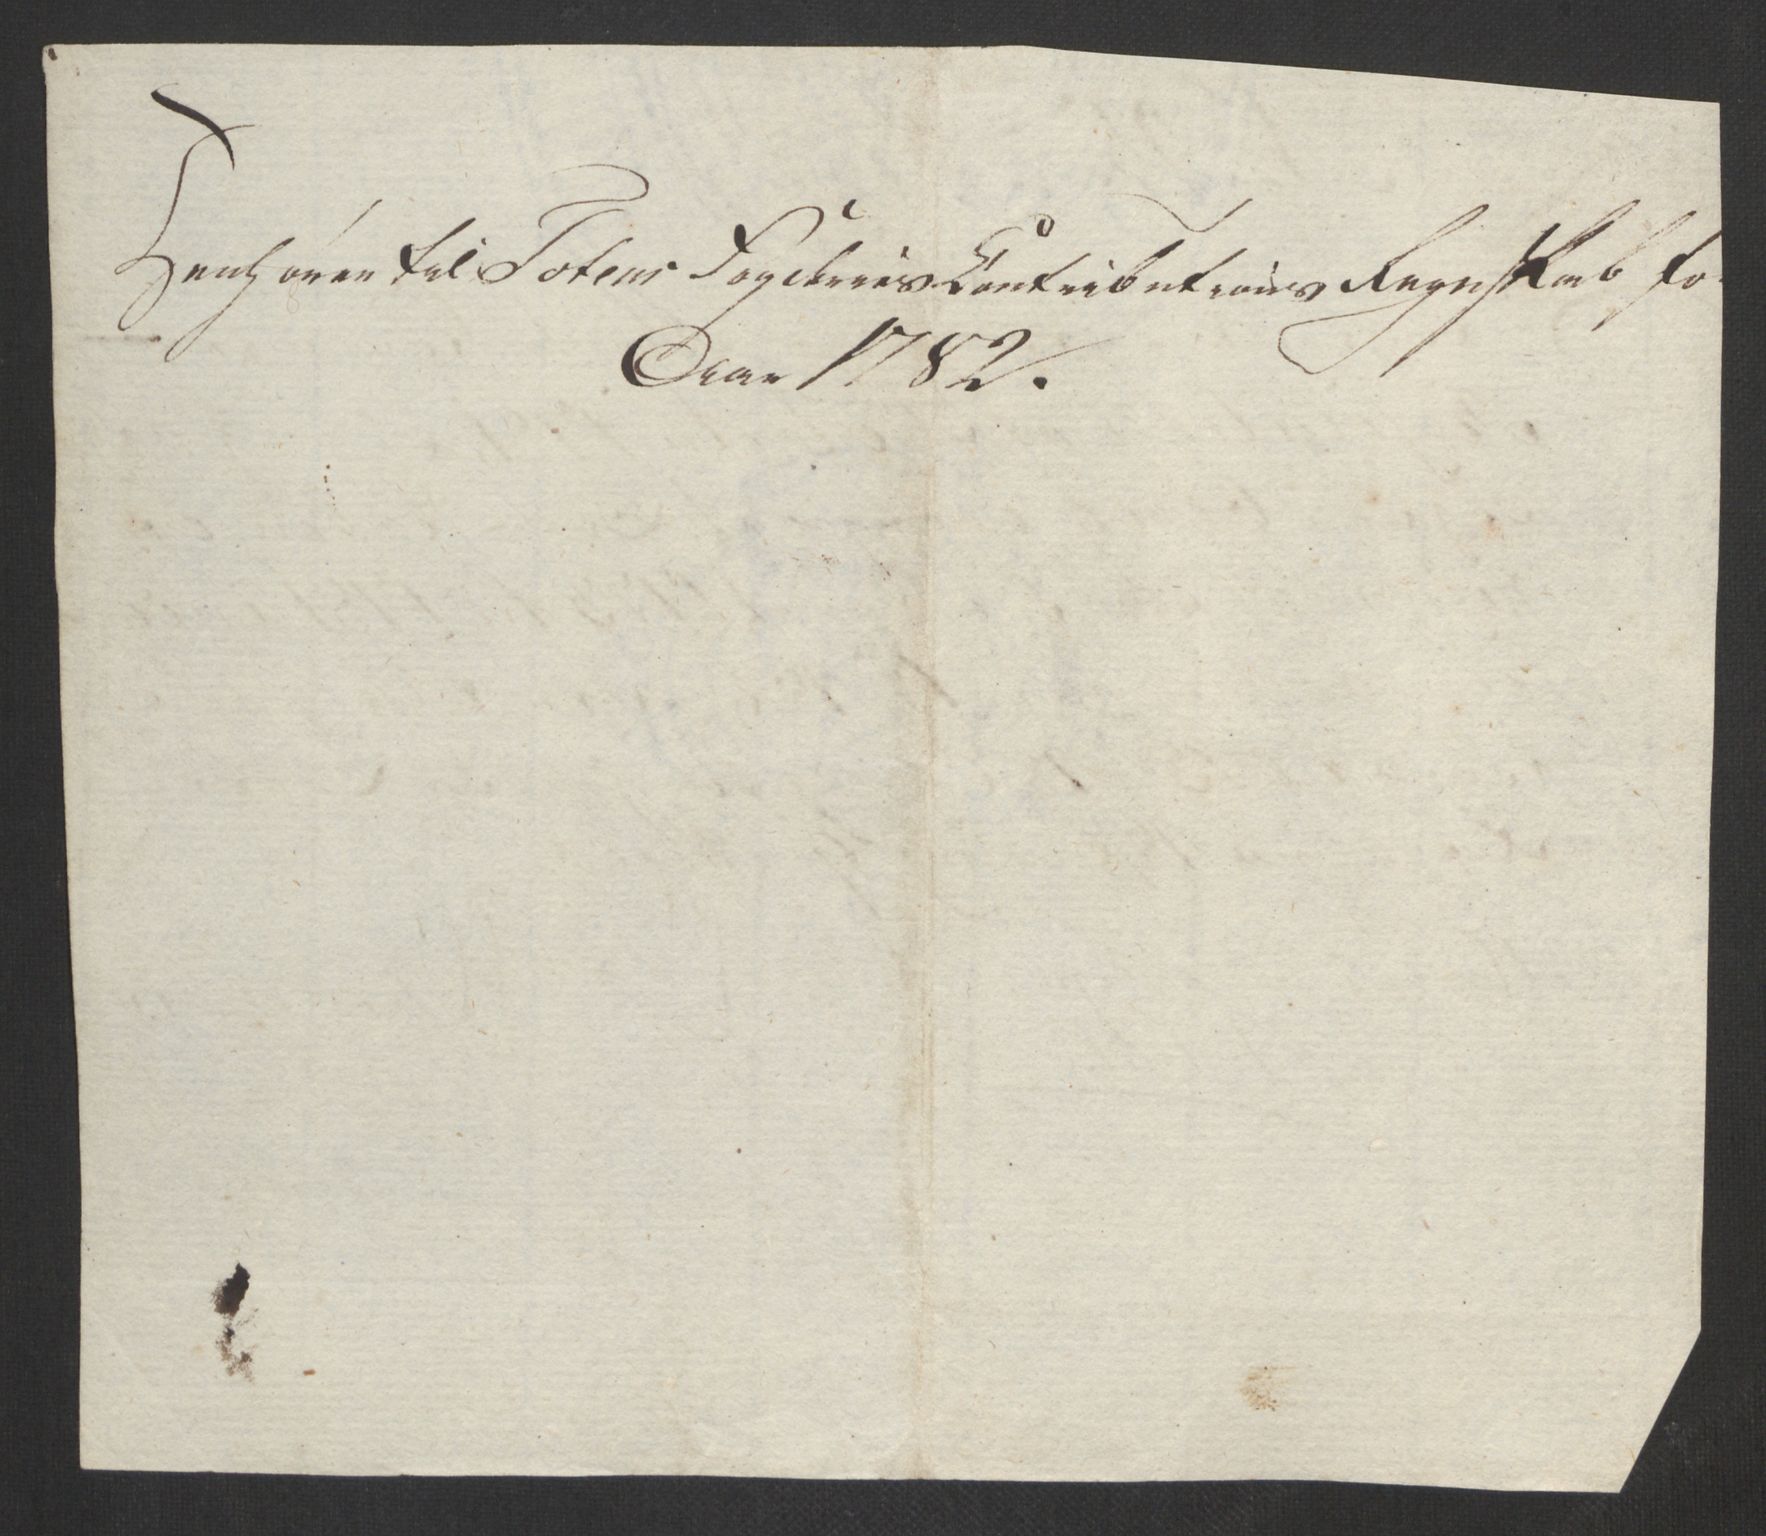 Henhörer til Totens Fogderies Contributions Regnskab fo
Aar 1782.